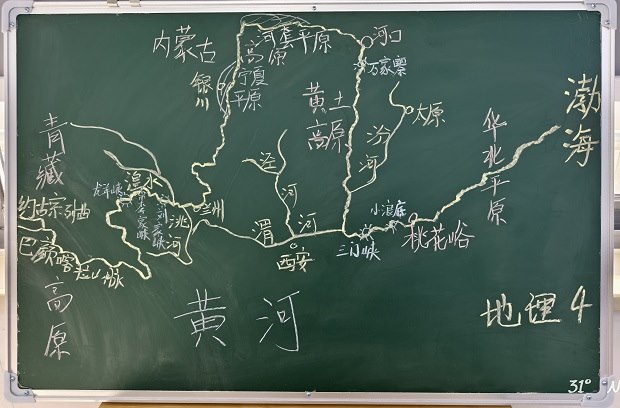 内蒙古
高原
河套平原
河口
万家寨
银川
宁夏平原
黄土高原
汾河
太原
华北平原
渤海
青藏高原
湟水
龙羊峡
李家峡
刘家峡
洮河
兰州
约古宗列曲
巴颜喀拉山脉
泾河
渭河
西安
三门峡
小浪底
桃花峪
黄河
地理4
31° N